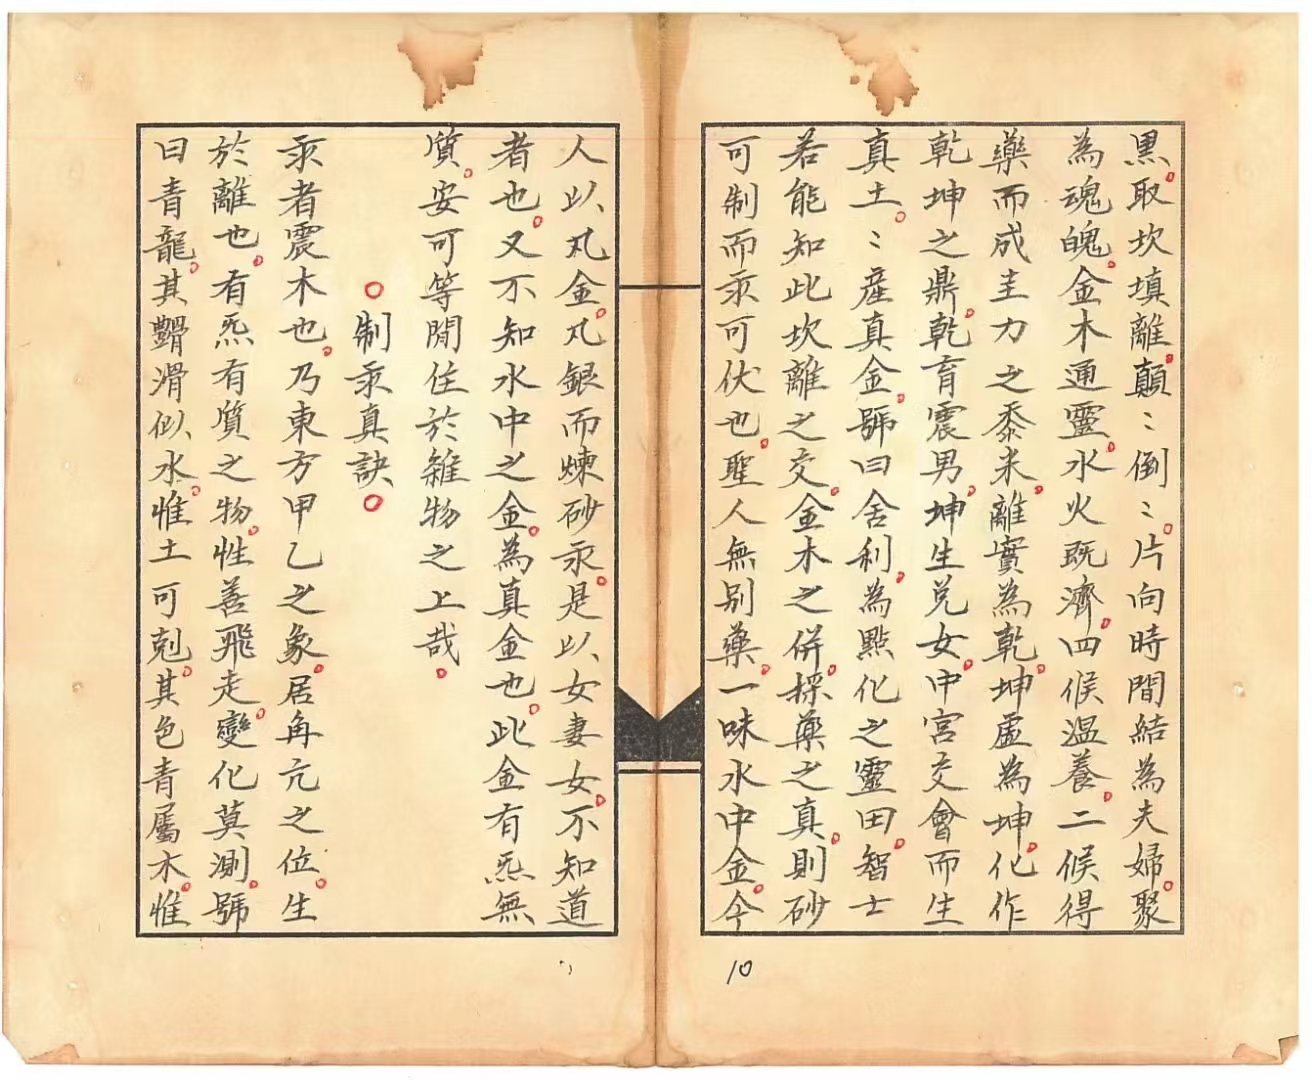 黒。取坎填離。顛〻倒〻。片向時間結為夫婦。聚
為魂魄。金木通靈。水火既濟。四候温養。二候得
藥而成圭力之黍米。離實為乾。坤虚為坤。化作
乾坤之鼎。乾育震男。坤生兌女。中宮交會而生
真土。〻産真金。號曰舍利。為點化之靈田。智士
若能知此坎離之交。金木之併。採藥之真。則砂
可制而汞可伏也。聖人無别藥。一味水中金。今
10
人以凡金。凡銀而煉砂汞。是以女妻女。不知道
者也。又不知水中之金。為真金也。此金有炁無
質。安可等閒住於雜物之上哉。
○制汞真訣○
汞者震木也。乃東方甲乙之象。居角亢之位。生
於離也。有炁有質之物。性善飛走。變化莫測。號
曰青龍。其滑似水。惟土可剋。其色青屬木。惟